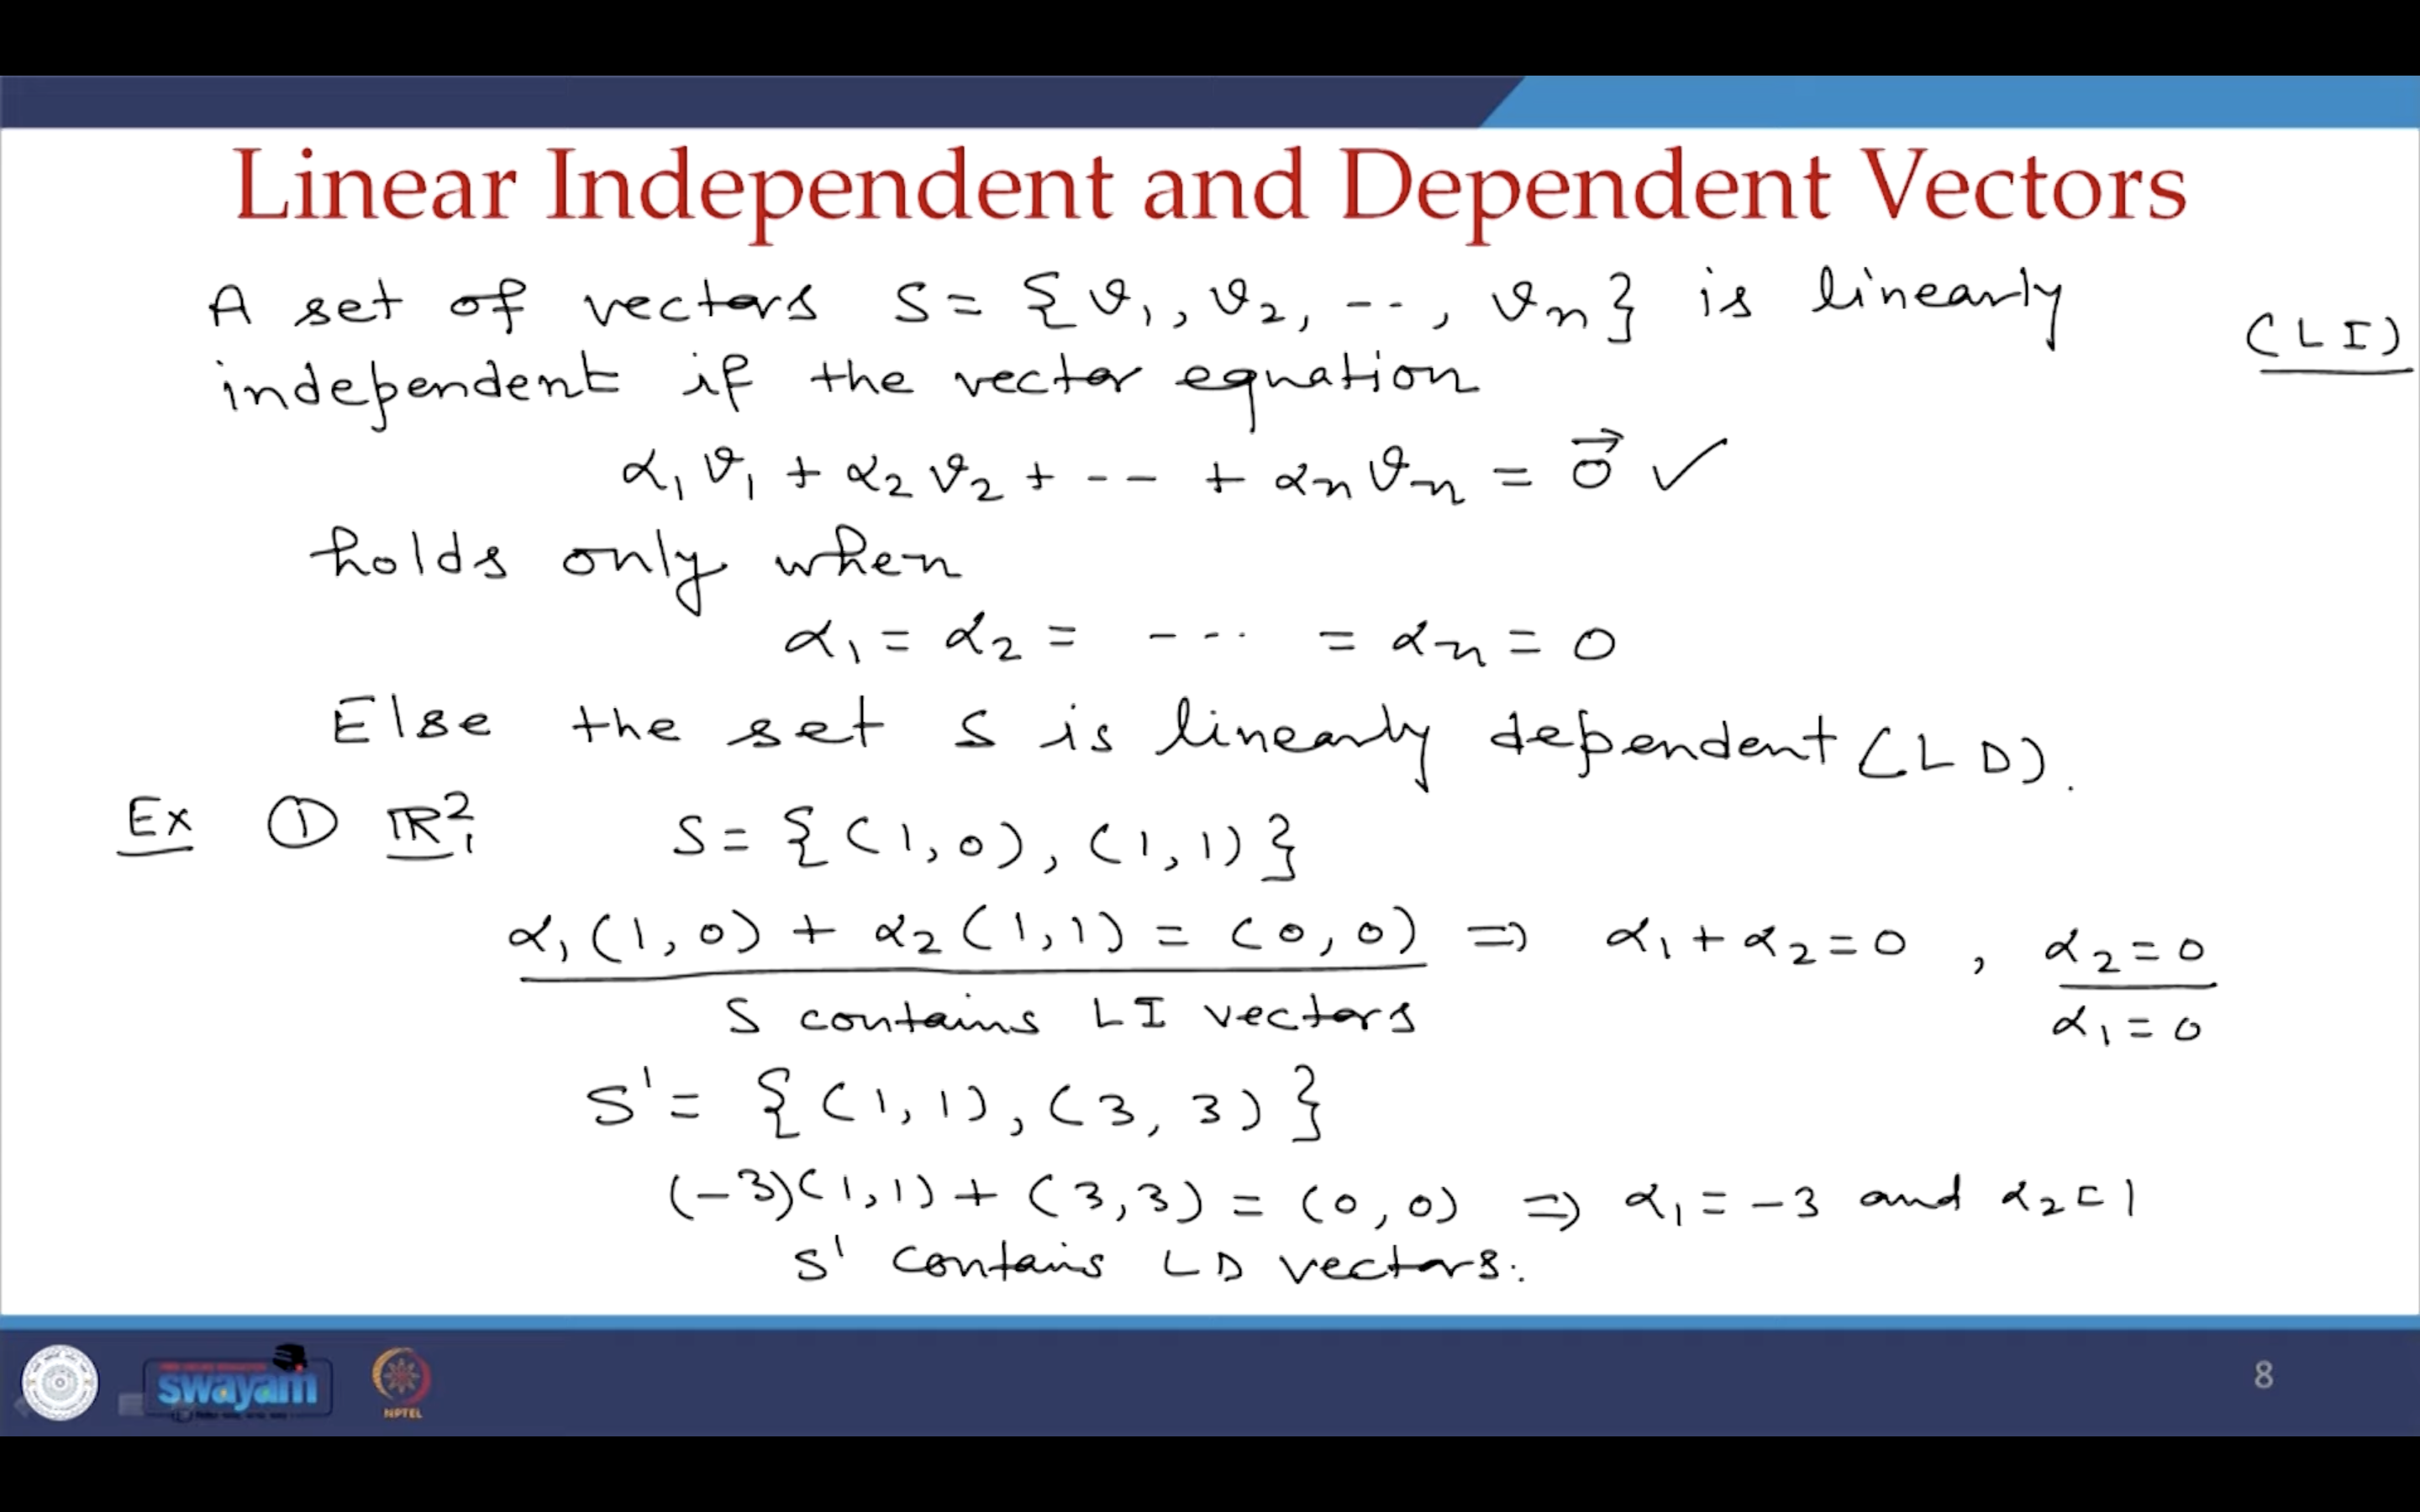 Linear Independent and Dependent Vectors
A set of vectors S = {v₁, v₂, --, vₙ} is linearly
(LI)
independent if the vector equation
α₁v₁ + α₂v₂ + -- + αₙvₙ = 0⃗ ✓
holds only when
α₁ = α₂ = --- = αₙ = 0
Else the set S is linearly dependent (LD).
Ex ① ℝ², S = {(1,0), (1,1)}
α₁(1,0) + α₂(1,1) = (0,0) ⇒ α₁+α₂=0, α₂=0
S contains LI vectors α₁=0
S' = {(1,1), (3,3)}
(-3)(1,1) + (3,3) = (0,0) ⇒ α₁ = -3 and α₂=1
S' contains LD vectors.
swayam
NPTEL
8